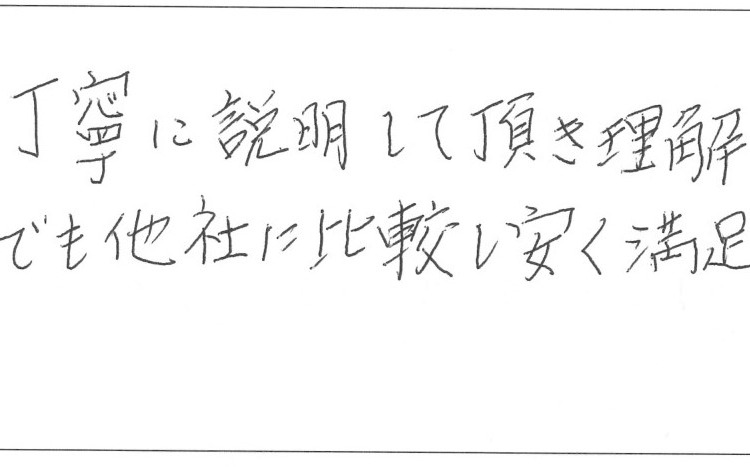 丁寧に説明して頂き理解
でも他社に比較し安く満足